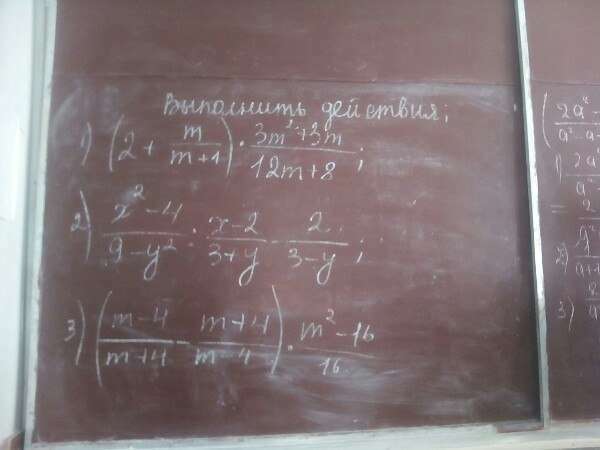 Выполнить действия;
1) (2 + m/(m+1)) · (3m²+3m)/(12m+8);
2) (x²-4)/(9-y²) : (x-2)/(3+y) - 2/(3-y);
3) ((m-4)/(m+4) - (m+4)/(m-4)) · (m²-16)/16.
(2a²
a²-a
1) 2a²
=
2)
a+1
3)